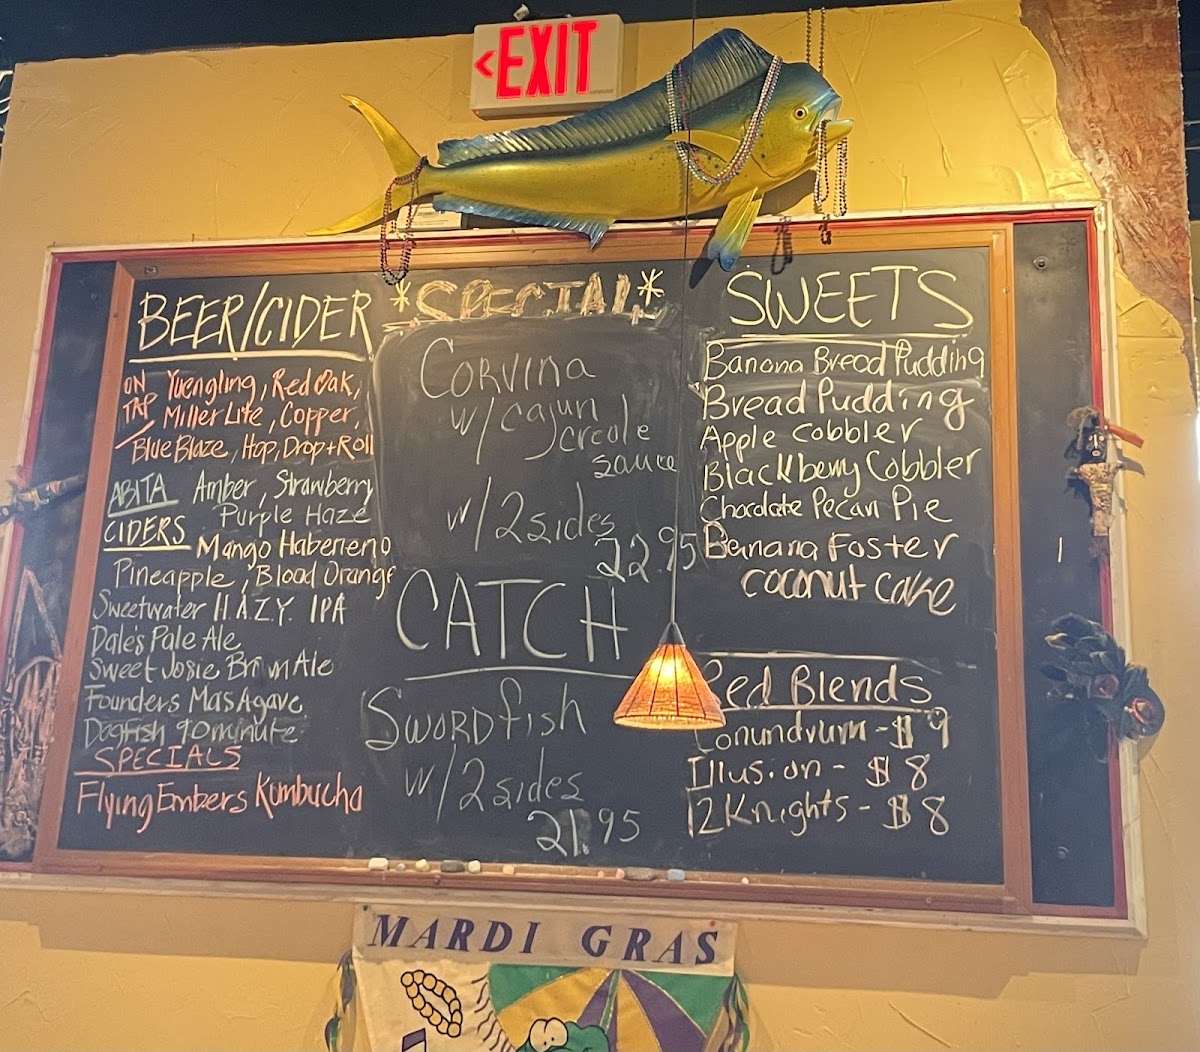 <EXIT
BEER/CIDER
ON TAP Yuengling, Red Oak,
Miller Lite, Copper,
Blue Blaze, Hop, Drop+Roll
ABITA Amber, Strawberry
Purple Haze
CIDERS Mango Habenero
Pineapple, Blood Orange
Sweetwater H.A.Z.Y. IPA
Dale's Pale Ale
Sweet Josie Brown Ale
Founders Mas Agave
Dogfish 90 minute
SPECIALS
Flying Embers Kombucha
*SPECIAL*
Corvina
w/ cajun
creole
sauce
w/ 2 sides
22.95
CATCH
Swordfish
w/ 2 sides
21.95
SWEETS
Banana Bread Pudding
Bread Pudding
Apple cobbler
Blackberry Cobbler
Chocolate Pecan Pie
Banana Foster
coconut cake
Red Blends
Conundrum - $9
Illusion - $8
12 Knights - $8
MARDI GRAS